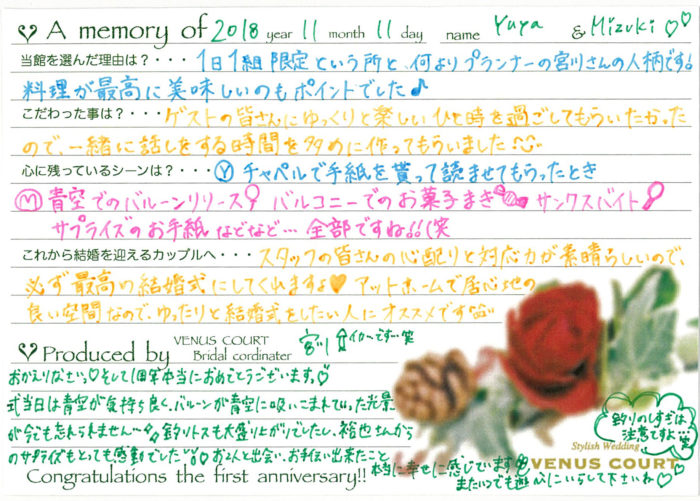 A memory of 2018 year 11 month 11 day name Yuya & Mizuki
当館を選んだ理由は？・・・1日1組限定という所と、何よりプランナーの宮川さんの人柄です。
料理が最高に美味しいのもポイントでした♪
こだわった事は？・・・ゲストの皆さんにゆっくりと楽しいひと時を過ごしてもらいたかった
ので、一緒に話しをする時間を多めに作ってもらいました
心に残っているシーンは？・・・Ⓨチャペルで手紙を貰って読ませてもらったとき
Ⓜ青空でのバルーンリリース バルコニーでのお菓子まき サンクスバイト
サプライズのお手紙などなど… 全部ですね!!(笑
これから結婚を迎えるカップルへ・・・スタッフの皆さんの心配りと対応力が素晴らしいので、
必ず最高の結婚式にしてくれますよ♥ アットホームで居心地の
良い空間なので、ゆったりと結婚式をしたい人にオススメです
Produced by VENUS COURT
Bridal cordinater 宮川 イカーです…笑
おかえりなさい♡そして1周年本当におめでとうございます。
式当日は青空が気持ち良く、バルーンが青空に吸いこまれていった光景
が今でも忘れられません… 釣りトスも大盛り上がりでしたし、裕也さんから
のサプライズもとっても感動でした お2人と出会い、お手伝い出来たこと
本当に幸せに感じています
またいつでも遊びにいらして下さいね♡
Congratulations the first anniversary!!
釣りのしすぎは、
注意ですよ…笑
Stylish Wedding
VENUS COURT